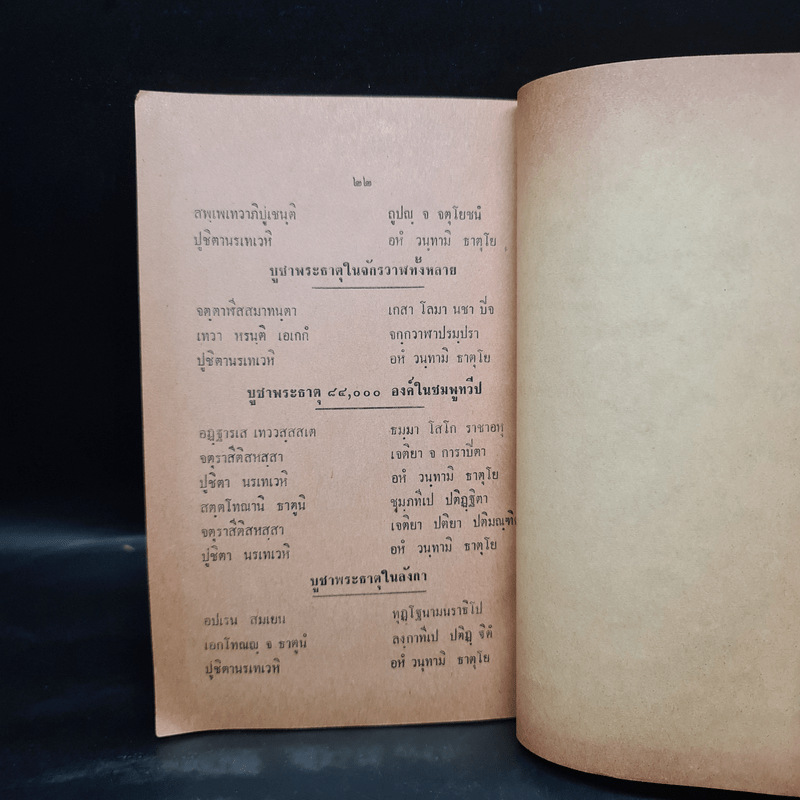 ๒๒
สพฺเพเทวาภิปูเชนฺติ ถูปญฺ จ จตุโยชนํ
ปูชิตานรเทเวหิ อหํ วนฺทามิ ธาตุโย
บูชาพระธาตุในจักรวาฬทั้งหลาย
จตฺตาฬีสสมาทนฺตา เกสา โลมา นขา ปิจ
เทวา หรนฺติ เอเกกํ จกฺกวาฬาปรมฺปรา
ปูชิตานรเทเวหิ อหํ วนฺทามิ ธาตุโย
บูชาพระธาตุ ๘๔,๐๐๐ องค์ในชมพูทวีป
อฏฺฐารเส เทววสฺสสเต ธมฺมา โสโก ราชาอหุ
จตุราสีติสหสฺสา เจติยา จ การาปิตา
ปูชิตา นรเทเวหิ อหํ วนฺทามิ ธาตุโย
สตฺตโทณานิ ธาตูนิ ชุมฺภทีเป ปติฏฺฐิตา
จตุราสีติสหสฺสา เจติยา ปติยา
ปูชิตา นรเทเวหิ อหํ วนฺทามิ ธาตุโย
บูชาพระธาตุในลังกา
อปเรน สมเยน ทุฏฺโฐนามนราธิโป
เอกโทณญฺ จ ธาตูนํ ลงฺกาทีเป ปติฏฺ ฐิตํ
ปูชิตานรเทเวหิ อหํ วนฺทามิ ธาตุโย